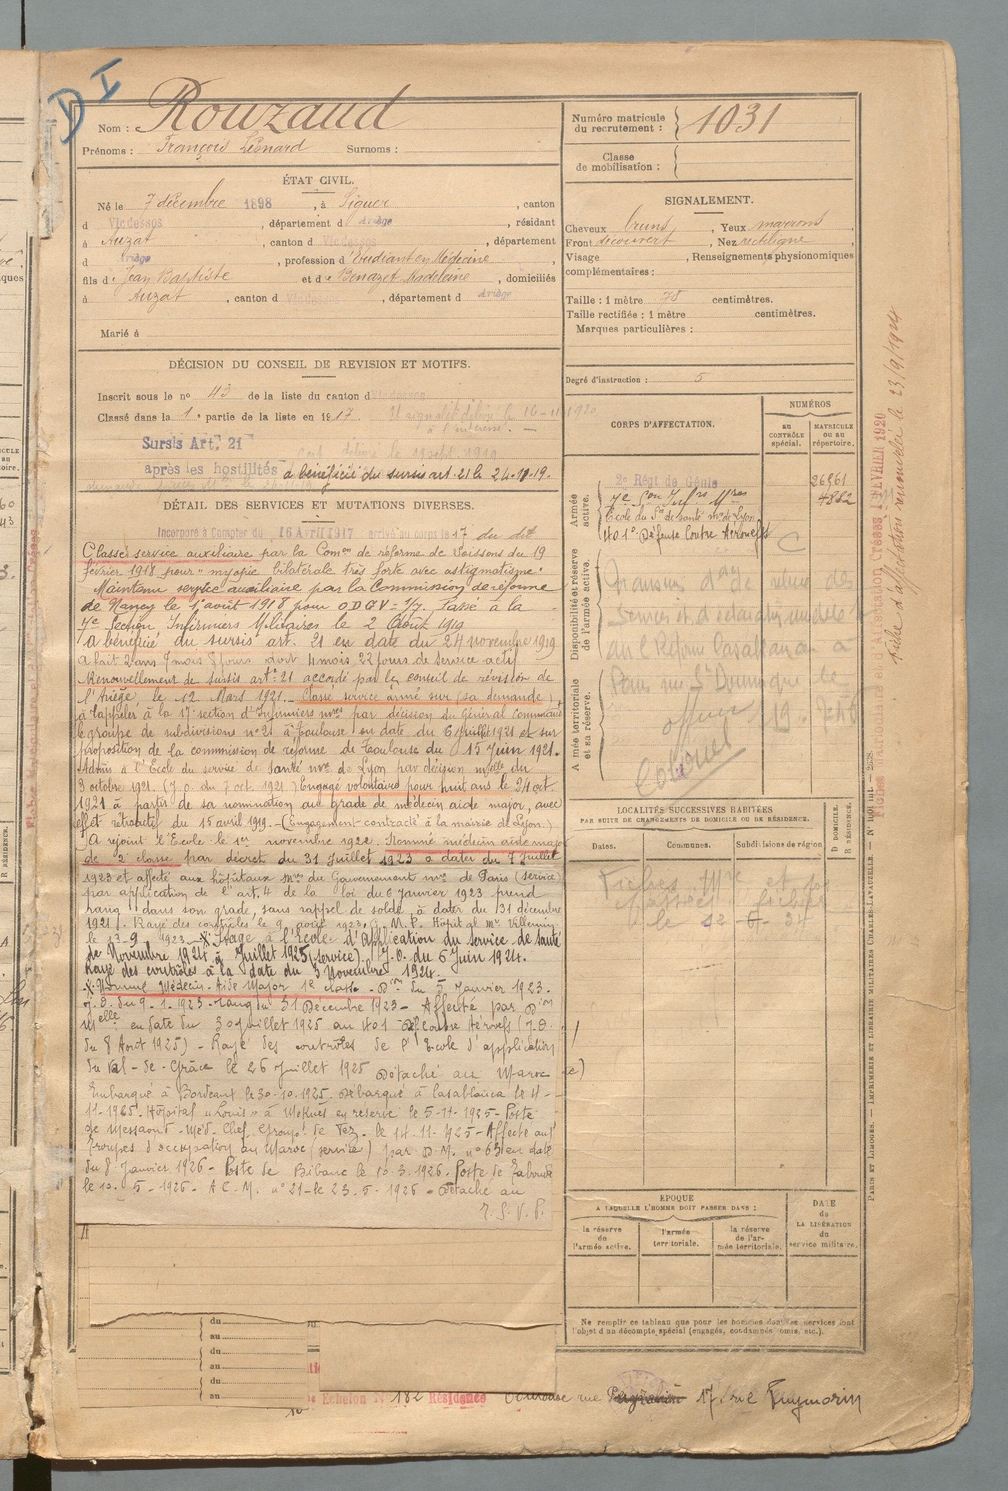 D I
Nom : Rouzaud
Prénoms : François Léonard Surnoms :
Numéro matricule du recrutement : 1031
Classe de mobilisation :
ÉTAT CIVIL.
Né le 7 décembre 1898, à Siguer, canton
d Vicdessos, département d Ariège, résidant
à Auzat, canton d Vicdessos, département
d Ariège, profession d'Etudiant en Médecine,
fils de Jean Baptiste et de Benazet Madeleine, domiciliés
à Auzat, canton d Vicdessos, département d Ariège
Marié à
SIGNALEMENT.
Cheveux bruns, Yeux marrons
Front découvert, Nez rectiligne
Visage , Renseignements physionomiques
complémentaires :
Taille : 1 mètre 78 centimètres.
Taille rectifiée : 1 mètre centimètres.
Marques particulières :
Degré d'instruction : 5
DÉCISION DU CONSEIL DE REVISION ET MOTIFS.
Inscrit sous le n° 43 de la liste du canton d Vicdessos
Classé dans la 1e partie de la liste en 1917.
à l'intéressé.
Sursis Art. 21
après les hostilités a bénéficié du sursis art. 21 le 24.11.19.
DÉTAIL DES SERVICES ET MUTATIONS DIVERSES.
Incorporé à Compter du 16 Avril 1917 arrivé au corps le 17 du dit
Classé service auxiliaire par la Comon de réforme de Soissons du 19
février 1918 pour "myopie bilatérale très forte avec astigmatisme".
Maintenu service auxiliaire par la Commission de réforme
de Nancy le 1er août 1918 pour O D G V = 1/7. Passé à la
7e Section Infirmiers Militaires le 2 Août 1919
A bénéficié du sursis art. 21 en date du 24 novembre 1919
A fait 2 ans 7 mois 8 jours dont 4 mois 22 jours de service actif
Renouvellement de sursis arte 21 accordé par le conseil de révision de
l'Ariège, le 12 Mars 1921. Classé service armé sur (sa demande)
à l'appeler à la 17e section d'Infirmiers mres par décision du Général Commandt
le groupe de subdivisions n° 21 à Toulouse en date du 6 Juillet 1921 et sur
proposition de la commission de réforme de Toulouse du 15 Juin 1921.
Admis à l'Ecole du service de Santé mre de Lyon par décision mielle du
3 octobre 1921. (J.O. du 7 oct. 1921) Engagé volontaire pour huit ans le 24 oct.
1921 à partir de sa nomination au grade de médecin aide major, avec
effet rétroactif du 15 avril 1919 - (Engagement contracté à la mairie de Lyon.)
A rejoint l'Ecole le 1er novembre 1922. Nommé médecin aide major
de 2e classe par décret du 31 Juillet 1923 à dater du 7 Juillet
1923 et affecté aux hôpitaux mres du Gouvernement mre de Paris (service)
par application de l'art. 4 de la loi du 6 Janvier 1923 prend
rang dans son grade, sans rappel de solde, à dater du 31 décembre
1921. Rayé des contrôles le 9 août 1923. G. M. P. Hôpital mre Villemin
le 13-9 1923 - X Stage à l'école d'Application du service de santé
de Novembre 1924 à Juillet 1925 (service). J.O. du 6 Juin 1924.
Rayé des contrôles à la date du 3 Novembre 1924.
X Nommé Médecin-Aide Major 1e classe - Don du 5 Janvier 1923.
J.O. du 9-1-1923. Rang du 31 Décembre 1923 - Affecté par Don
mielle en date du 30 Juillet 1925 au 401e Défense Aéronefs (J.O.
du 8 Août 1925) - Rayé des contrôles de l'Ecole d'application
du Val-de-Grâce le 26 Juillet 1925 Détaché au Maroc
Embarqué à Bordeaux le 30-10-1925. Débarqué à Casablanca le 4-
11-1925. Hôpital "Louis" à Meknès en réserve le 5-11-1925 - Poste
de Messaoud - Méd. Chef. Groupt de Fez. le 14-11-1925 - Affecté aux
Troupes d'occupation au Maroc (service) par D.M. n° 63 en date
du 8 Janvier 1926 - Poste de Bibane le 10.3.1926. Poste de
le 10-5-1926. A.C.M. n° 21 - le 23.5.1926 - Détaché au
T.S.V.P.
CORPS D'AFFECTATION.
NUMÉROS
AU CONTRÔLE spécial.
MATRICULE OU AU répertoire.
Armée active.
2e Régt de Génie 26961
7e Son Infrs Mres 4882
Ecole du Sce de Santé mre de Lyon
401e Défense Contre Aéronefs
Disponibilité et réserve de l'armée active.
Armée territoriale et sa réserve.
Colonel
LOCALITÉS SUCCESSIVES HABITÉES
PAR SUITE DE CHANGEMENTS DE DOMICILE OU DE RÉSIDENCE.
Dates. Communes. Subdivisions de région
D DOMICILE. R RÉSIDENCE.
ÉPOQUE
A LAQUELLE L'HOMME DOIT PASSER DANS :
la réserve de l'armée active.
l'armée territoriale.
la réserve de l'armée territoriale.
DATE de LA LIBÉRATION du service militaire.
Ne remplir ce tableau que pour les hommes dont les services font
l'objet d'un décompte spécial (engagés, condamnés, omis, etc.).
du
au
du
au
du
au
Echelon N° 182 Résidence Toulouse rue 17, rue
PARIS ET LIMOGES. — IMPRIMERIE ET LIBRAIRIE MILITAIRES CHARLES-LAVAUZELLE.
Fiche d'affectation annulée le 23/9/1924